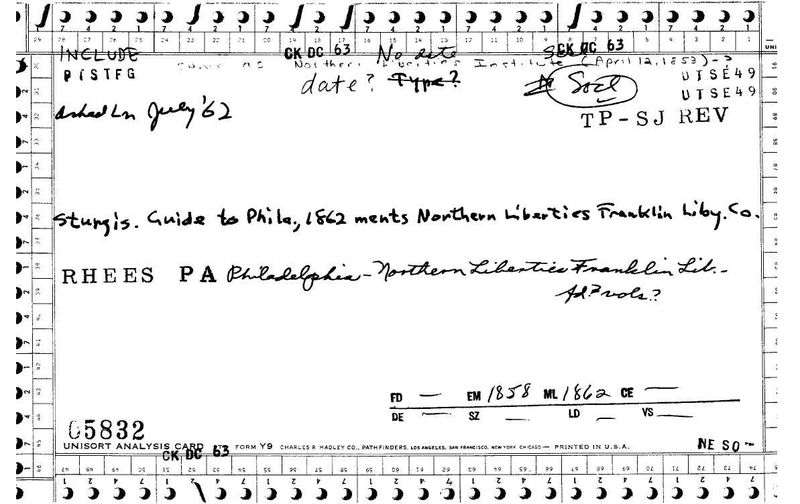 CK DC 63 No date CK DC 63
INCLUDE
Northern Liberties Institute (April 12, 1853) - ?
PISTFG date? Type? Socl UTSE49
UTSE49
asked Ln July '62 TP-SJ REV
Sturgis. Guide to Phila, 1862 ments Northern Liberties Franklin Liby. Co.
RHEES PA Philadelphia - Northern Liberties Franklin Lib. -
Ad? vols?
FD — EM 1858 ML 1862 CE —
DE — SZ — LD — VS —
05832
UNISORT ANALYSIS CARD FORM Y9 CHARLES R HADLEY CO., PATHFINDERS, LOS ANGELES, SAN FRANCISCO, NEW YORK CHICAGO — PRINTED IN U.S.A. NE SO -
CK DC 63